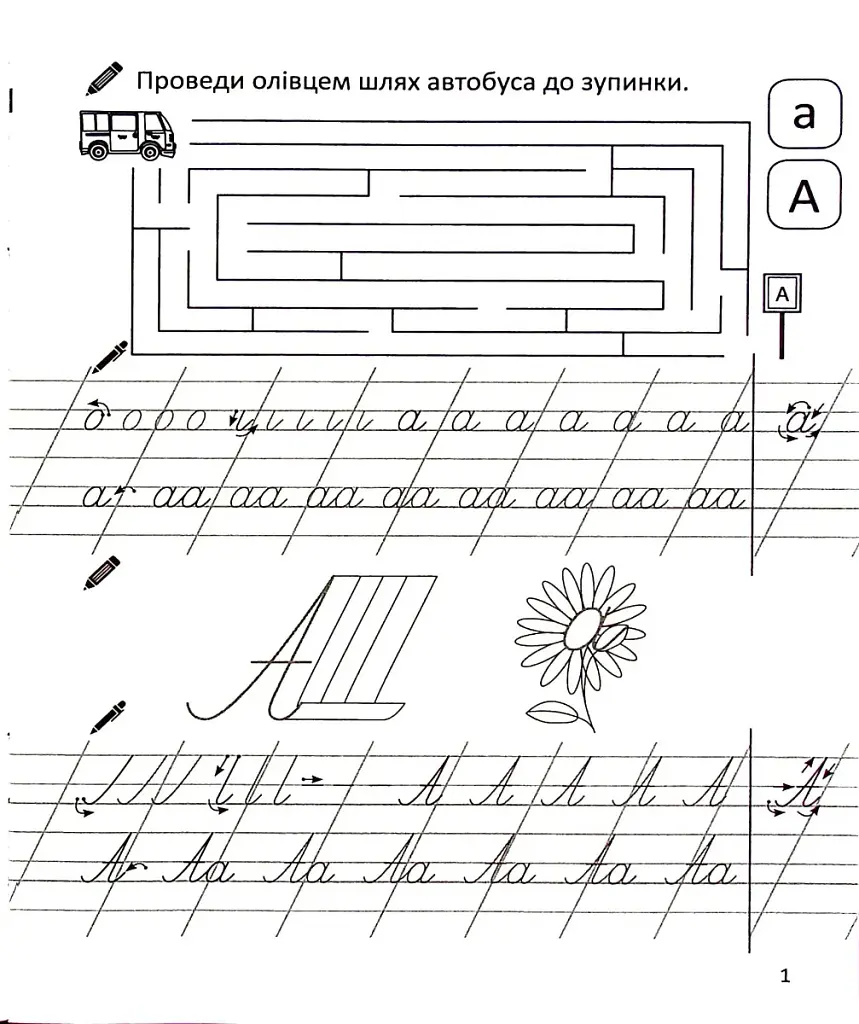 Проведи олівцем шлях автобуса до зупинки.
а
А
А
о о о о и и и и и а а а а а а а а
а аа аа аа аа аа аа аа аа
А А А А А А
А Аа Аа Аа Аа Аа Аа
1